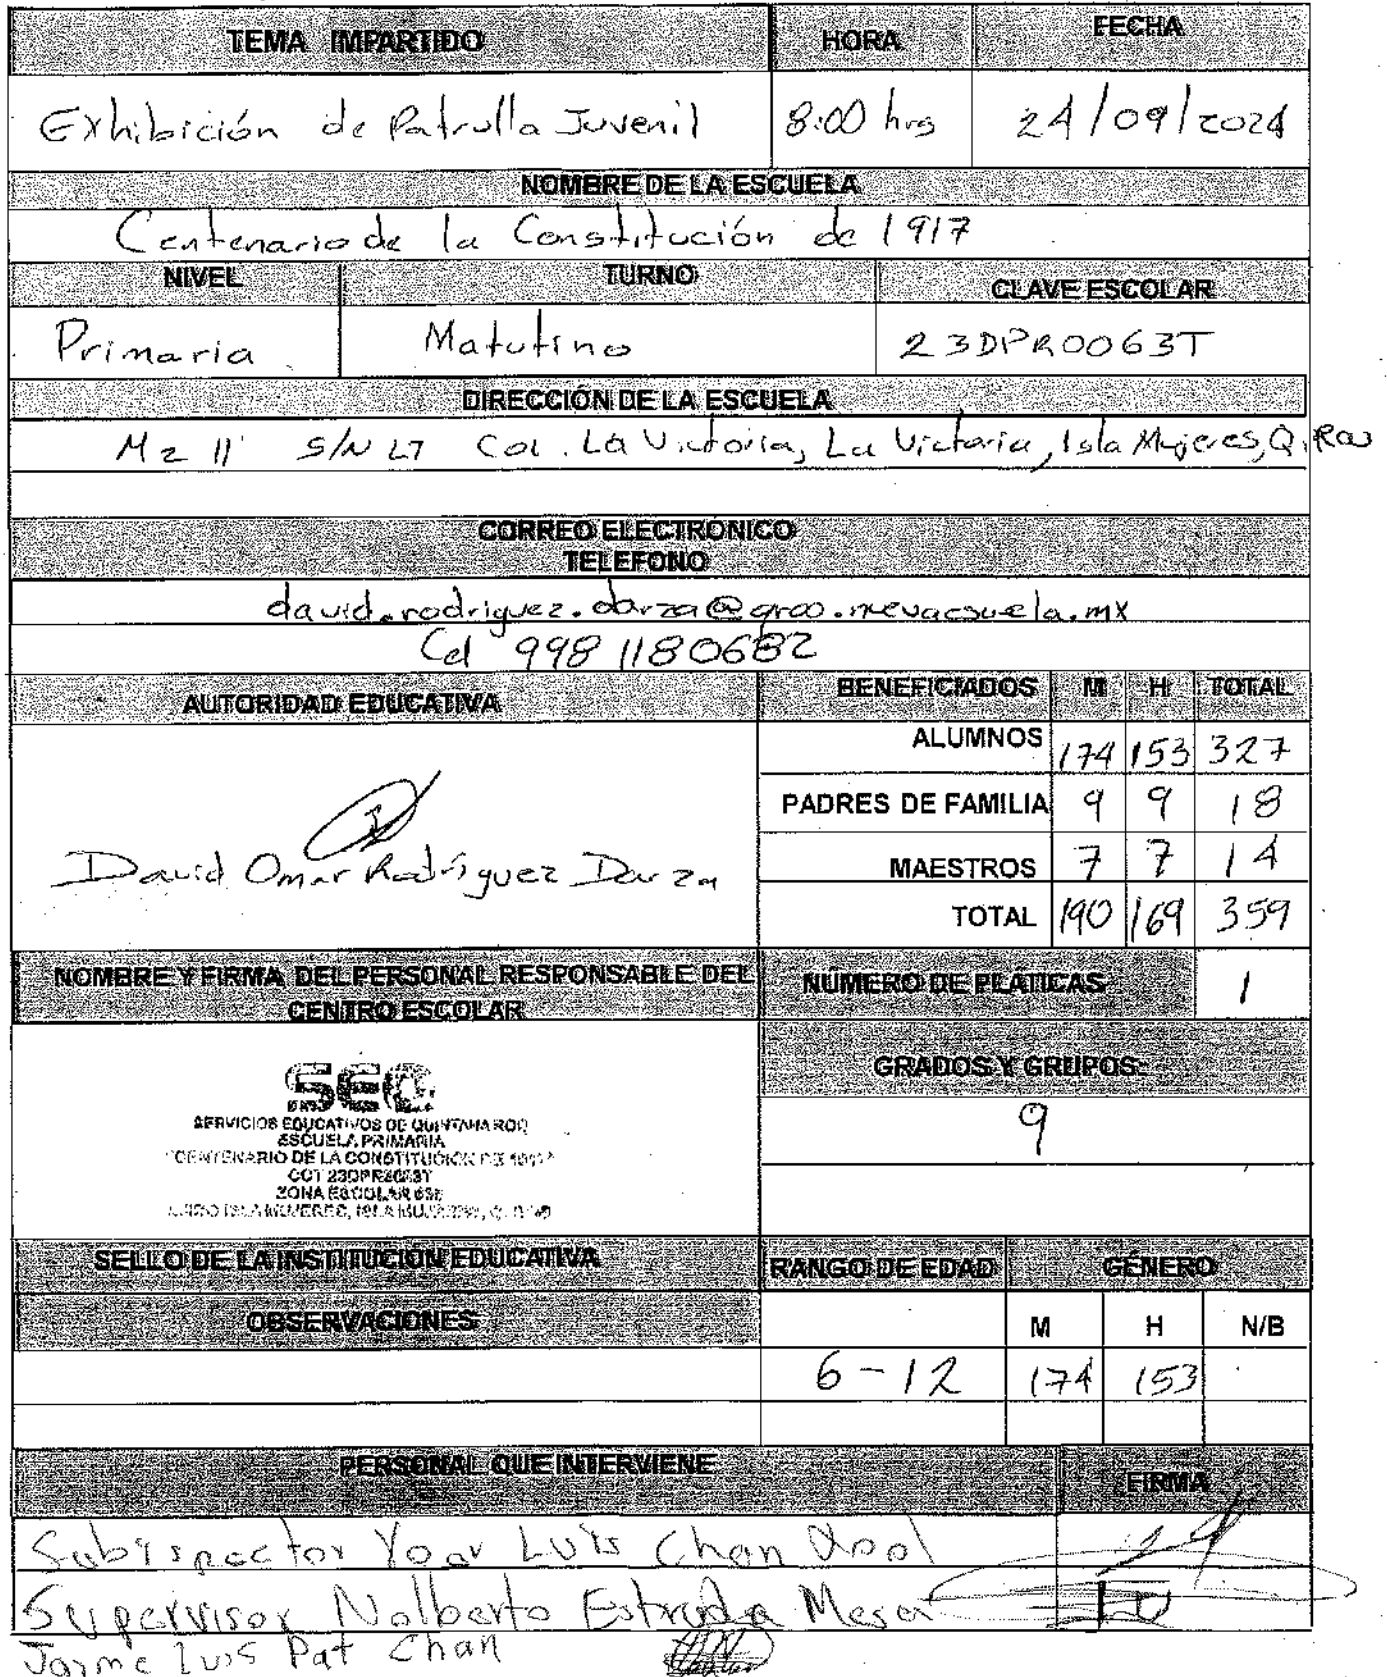 TEMA IMPARTIDO HORA FECHA
Exhibición de Patrulla Juvenil 8:00 hrs 24/09/2024
NOMBRE DE LA ESCUELA
Centenario de la Constitución de 1917
NIVEL TURNO CLAVE ESCOLAR
Primaria Matutino 23DPR0063T
DIRECCIÓN DE LA ESCUELA
Mz 11 S/N LT Col. La Victoria, La Victoria, Isla Mujeres, Q. Roo
CORREO ELECTRÓNICO
TELEFONO
david.rodriguez.darza@qroo.nuevaescuela.mx
Cel 998 1180682
AUTORIDAD EDUCATIVA BENEFICIADOS M H TOTAL
ALUMNOS 174 153 327
PADRES DE FAMILIA 9 9 18
David Omar Rodríguez Darza
MAESTROS 7 7 14
TOTAL 190 169 359
NOMBRE Y FIRMA DEL PERSONAL RESPONSABLE DEL CENTRO ESCOLAR NÚMERO DE PLATICAS 1
GRADOS Y GRUPOS:
9
SEQ
SERVICIOS EDUCATIVOS DE QUINTANA ROO
ESCUELA PRIMARIA
"CENTENARIO DE LA CONSTITUCION DE 1917"
CCT
ZONA ESCOLAR
ISLA MUJERES, ISLA MUJERES, Q. ROO
SELLO DE LA INSTITUCIÓN EDUCATIVA RANGO DE EDAD GÉNERO
OBSERVACIONES M H N/B
6-12 174 153
PERSONAL QUE INTERVIENE FIRMA
Subispector Yoav Luis Chan Xool
Supervisor Nalberto Estrada Mesa
Jaime Luis Pat Chan